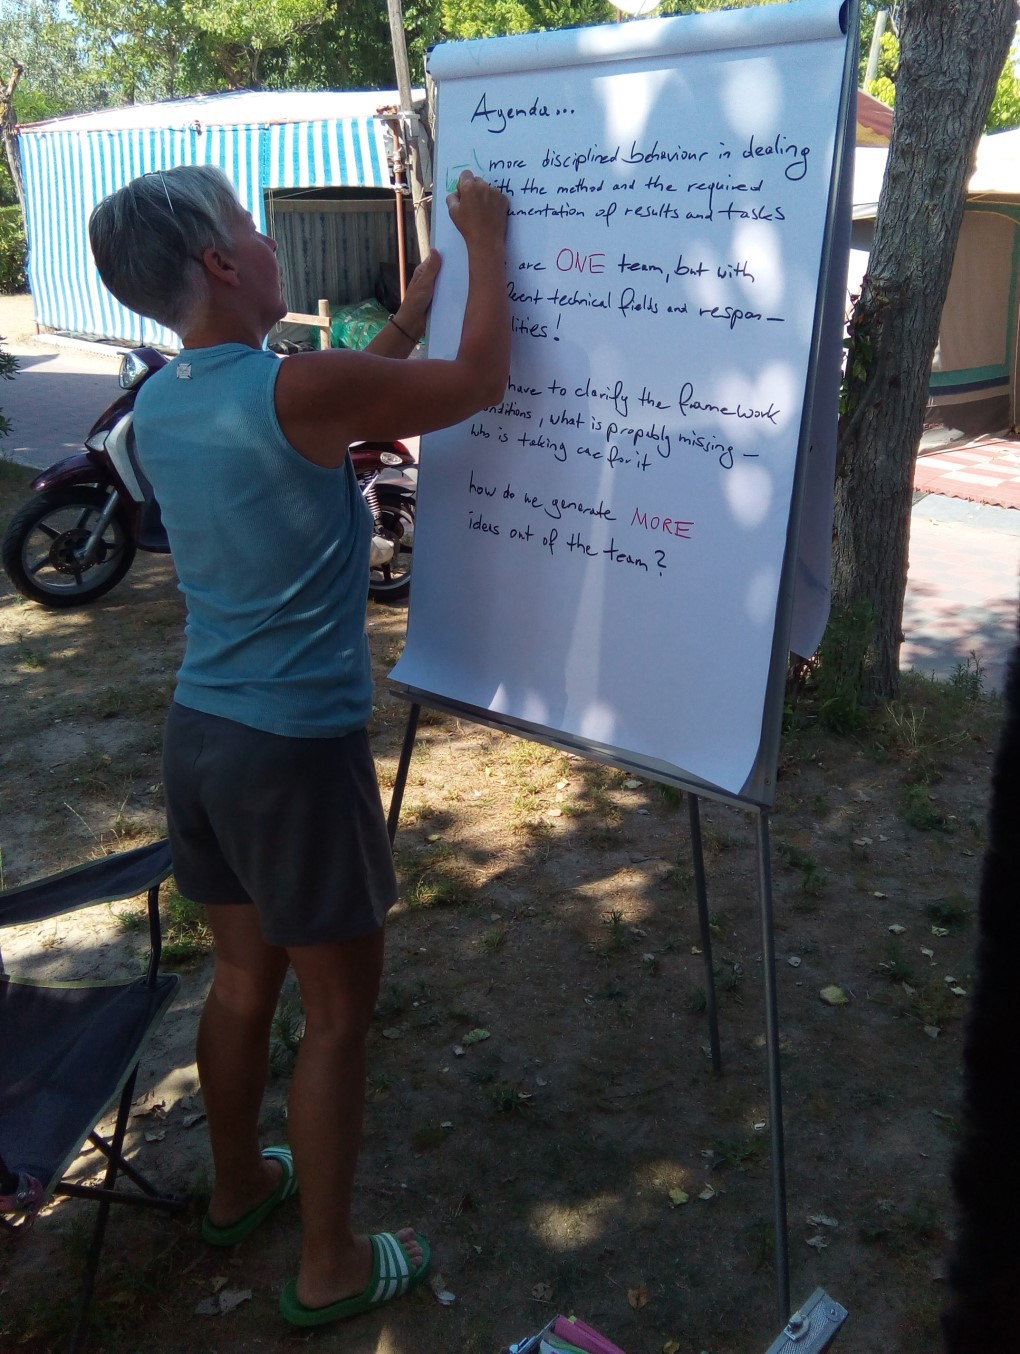 Agenda...
more disciplined behaviour in dealing
ith the method and the required
umentation of results and tasks
are ONE team, but with
erent technical fields and respon-
lities!
have to clarify the framework
onditions, what is propably missing -
who is taking care for it
how do we generate MORE
ideas out of the team?